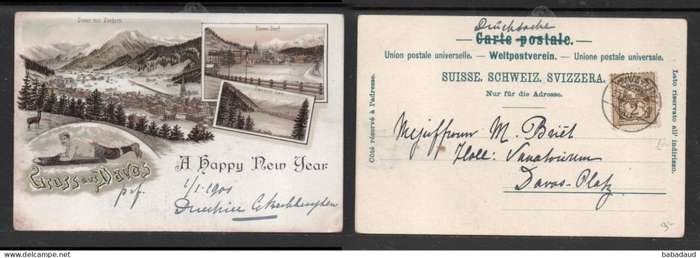 Davos mit Seehorn
Davos Dorf
Gruss aus Davos
A Happy New Year
p.f. 1/I 1901
Drucksache
Carte postale.
Union postale universelle. — Weltpostverein. — Unione postale universale.
SUISSE. SCHWEIZ. SVIZZERA.
Nur für die Adresse.
Côté réservé à l'adresse.
Lato riservato all' indirizzo.
Mejuffrouw M.
Holl: Sanatorium
Davos-Platz
babadaud